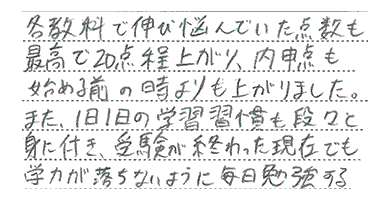 各教科で伸び悩んでいた点数も
最高で20点程上がり、内申点も
始める前の時よりも上がりました。
また、1日1日の学習習慣も段々と
身に付き、受験が終わった現在でも
学力が落ちないように毎日勉強する